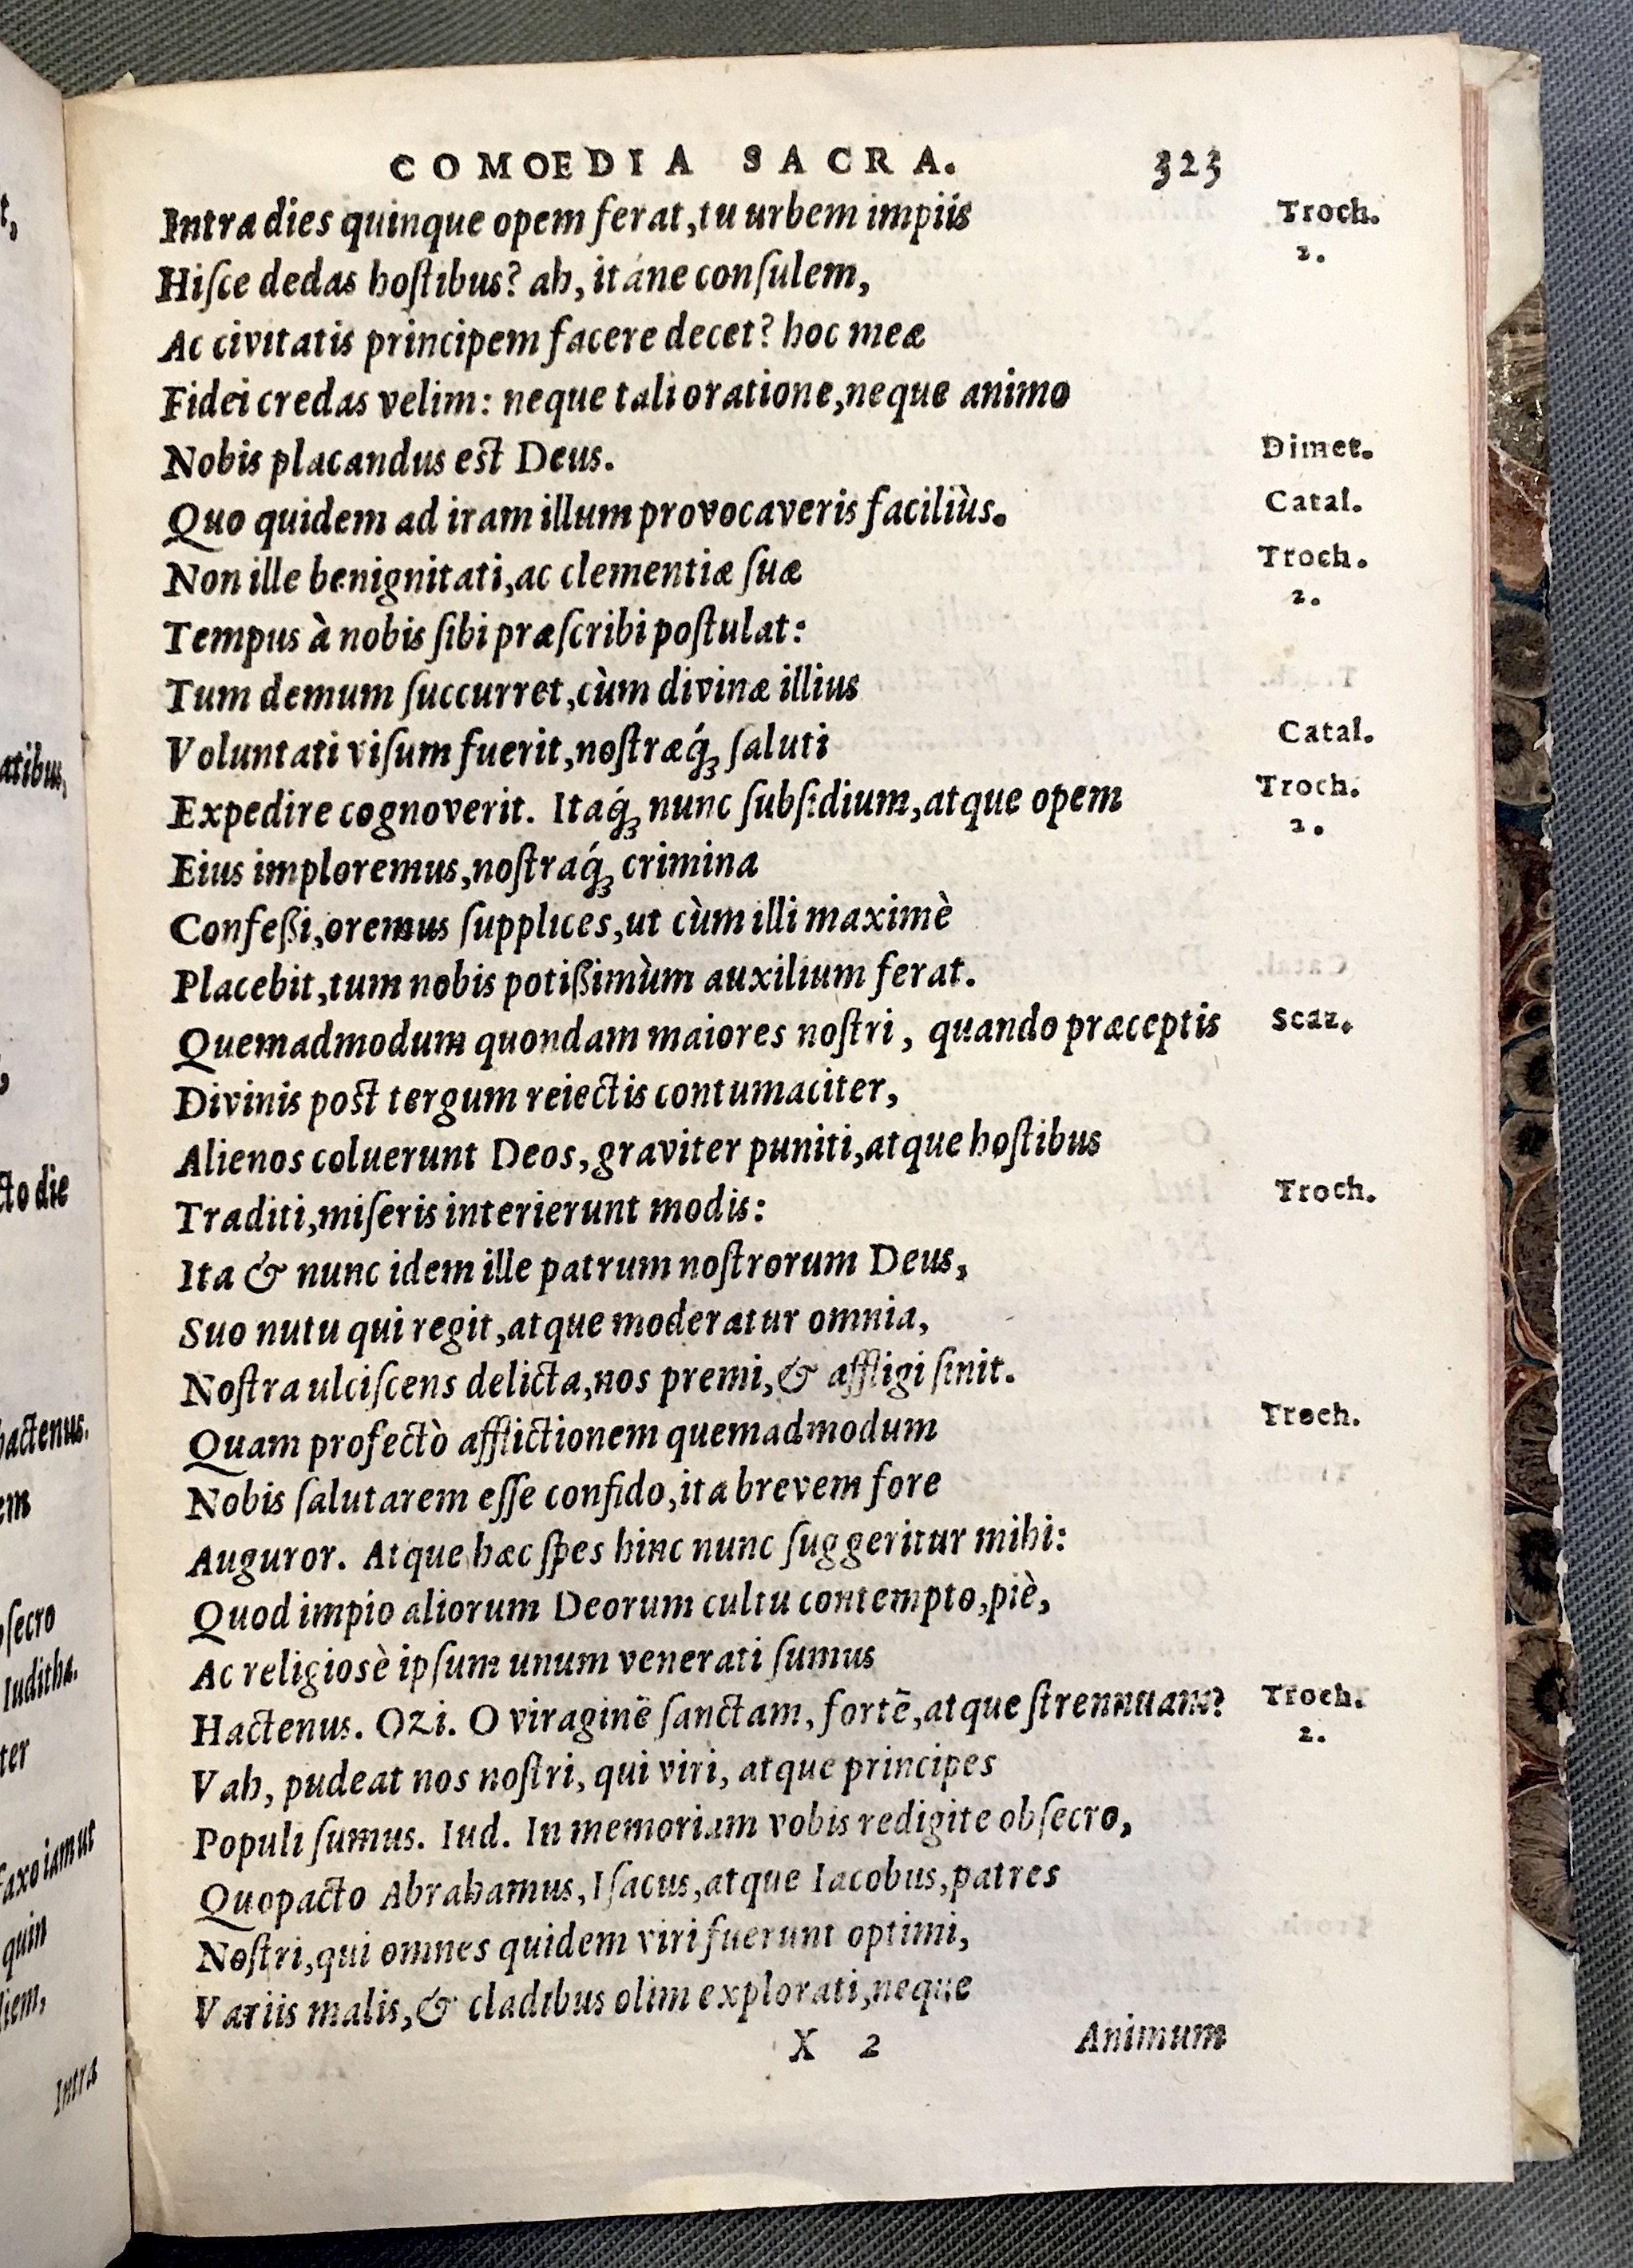 COMOEDIA SACRA. 323
Intra dies quinque opem ferat, tu urbem impiis Troch.
2.
Hiſce dedas hoſtibus? ah, itáne conſulem,
Ac civitatis principem facere decet? hoc meæ
Fidei credas velim: neque tali oratione, neque animo
Nobis placandus est Deus. Dimet.
Quo quidem ad iram illum provocaveris faciliùs. Catal.
Non ille benignitati, ac clementiæ ſuæ Troch.
2.
Tempus à nobis ſibi præſcribi poſtulat:
Tum demum ſuccurret, cùm divinæ illius
Voluntati viſum fuerit, noſtræq́ꝫ ſaluti Catal.
Expedire cognoverit. Itaq́ꝫ nunc ſubſidium, atque opem Troch.
2.
Eius imploremus, noſtraq́ꝫ crimina
Confeßi, oremus ſupplices, ut cùm illi maximè
Placebit, tum nobis potißimùm auxilium ferat.
Quemadmodum quondam maiores noſtri, quando præceptis Scaz.
Divinis post tergum reiectis contumaciter,
Alienos coluerunt Deos, graviter puniti, atque hoſtibus
Traditi, miſeris interierunt modis: Troch.
Ita & nunc idem ille patrum noſtrorum Deus,
Suo nutu qui regit, atque moderatur omnia,
Noſtra ulciſcens delicta, nos premi, & affligi ſinit.
Quam profectò afflictionem quemadmodum Troch.
Nobis ſalutarem eſſe confido, ita brevem fore
Auguror. Atque hæc ſpes hinc nunc ſuggeritur mihi:
Quod impio aliorum Deorum cultu contempto, piè,
Ac religiosè ipſum unum venerati ſumus
Hactenus. Ozi. O viraginē ſanctam, fortē, atque ſtrennuam? Troch.
2.
Vah, pudeat nos noſtri, qui viri, atque principes
Populi ſumus. Iud. In memoriam vobis redigite obſecro,
Quopacto Abrahamus, Iſacus, atque Iacobus, patres
Noſtri, qui omnes quidem viri fuerunt optimi,
Variis malis, & cladibus olim explorati, neque
X 2 Animum
t,
atibus,
cto die
hactenus.
em
obſecro
Iuditha.
ter
faxo iam ut
quin
diem,
Intra